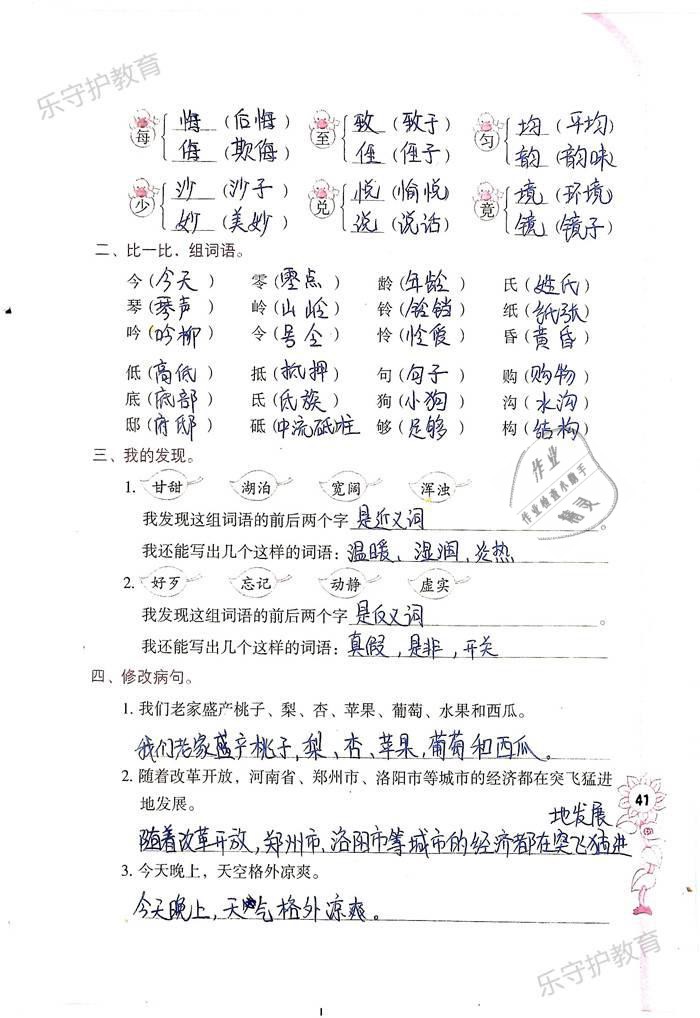 乐守护教育
每 悔（后悔） 至 致（致于） 匀 均（平均）
侮（欺侮） 侄（侄子） 韵（韵味）
少 沙（沙子） 兑 悦（愉悦） 竟 境（环境）
妙（美妙） 说（说话） 镜（镜子）
二、比一比，组词语。
今（今天） 零（零点） 龄（年龄） 氏（姓氏）
琴（琴声） 岭（山岭） 铃（铃铛） 纸（纸张）
吟（吟柳） 令（号令） 怜（怜爱） 昏（黄昏）
低（高低） 抵（抵押） 句（句子） 购（购物）
底（底部） 氏（氏族） 狗（小狗） 沟（水沟）
邸（府邸） 砥（中流砥柱） 够（足够） 构（结构）
三、我的发现。
1. 甘甜 湖泊 宽阔 浑浊
我发现这组词语的前后两个字 是近义词 。
我还能写出几个这样的词语：温暖、湿润、炎热
2. 好歹 忘记 动静 虚实
我发现这组词语的前后两个字 是反义词 。
我还能写出几个这样的词语：真假，是非，开关
作业
作业检查小助手
精灵
四、修改病句。
1. 我们老家盛产桃子、梨、杏、苹果、葡萄、水果和西瓜。
我们老家盛产桃子，梨、杏、苹果，葡萄和西瓜。
2. 随着改革开放，河南省、郑州市、洛阳市等城市的经济都在突飞猛进
地发展。
地发展
随着改革开放，郑州市、洛阳市等城市的经济都在突飞猛进
3. 今天晚上，天空格外凉爽。
今天晚上，天气格外凉爽。
41
乐守护教育